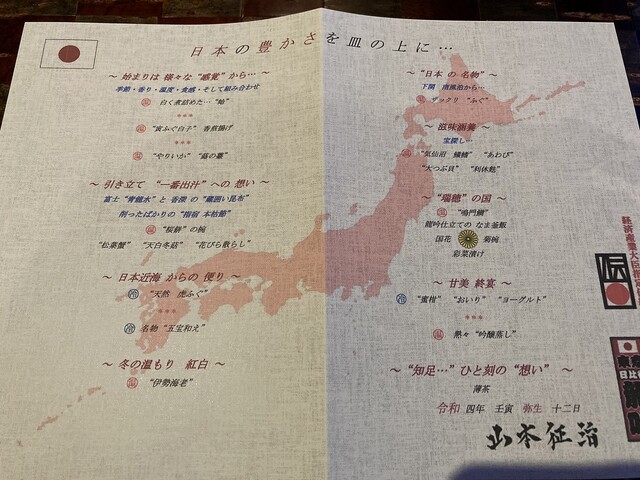 日本の豊かさを皿の上に…
～ 始まりは 様々な “感覚” から… ～
季節・香り・温度・食感・そして組み合わせ
温 白く煮詰めた… “蛤”
***
温 “寅ふぐ白子” 香煎揚げ
***
温 “やりいか” “蕗の薹”
～ 引き立て “一番出汁” への 想い ～
富士 “青龍水” と 香深 の “蔵囲い昆布”
削ったばかりの “指宿 本枯節”
温 “桜餅” の椀
“松葉蟹” “天白冬菇” “花びら散らし”
～ 日本近海 からの 便り ～
冷 “天然 虎ふぐ”
***
冷 名物 “五宝和え”
～ 冬の温もり 紅白 ～
温 “伊勢海老”
～ “日本 の 名物” ～
下関 南風泊から…
温 ザックリ “ふぐ”
～ 滋味涵養 ～
宝探し…
温 “気仙沼 鱶鰭” “あわび”
“大つぶ貝” “利休麩”
～ “瑞穂” の国 ～
温 “鳴門鯛”
龍吟仕立ての なま釜飯
国花 菊椀
彩菜漬け
～ 甘美 終宴 ～
冷 “蜜柑” “おいり” “ヨーグルト”
***
温 熱々 “吟醸蒸し”
～ “知足…” ひと刻の “想い” ～
薄茶
令和 四年 壬寅 弥生 十二日
山本征治
経済産業大臣指定
伝